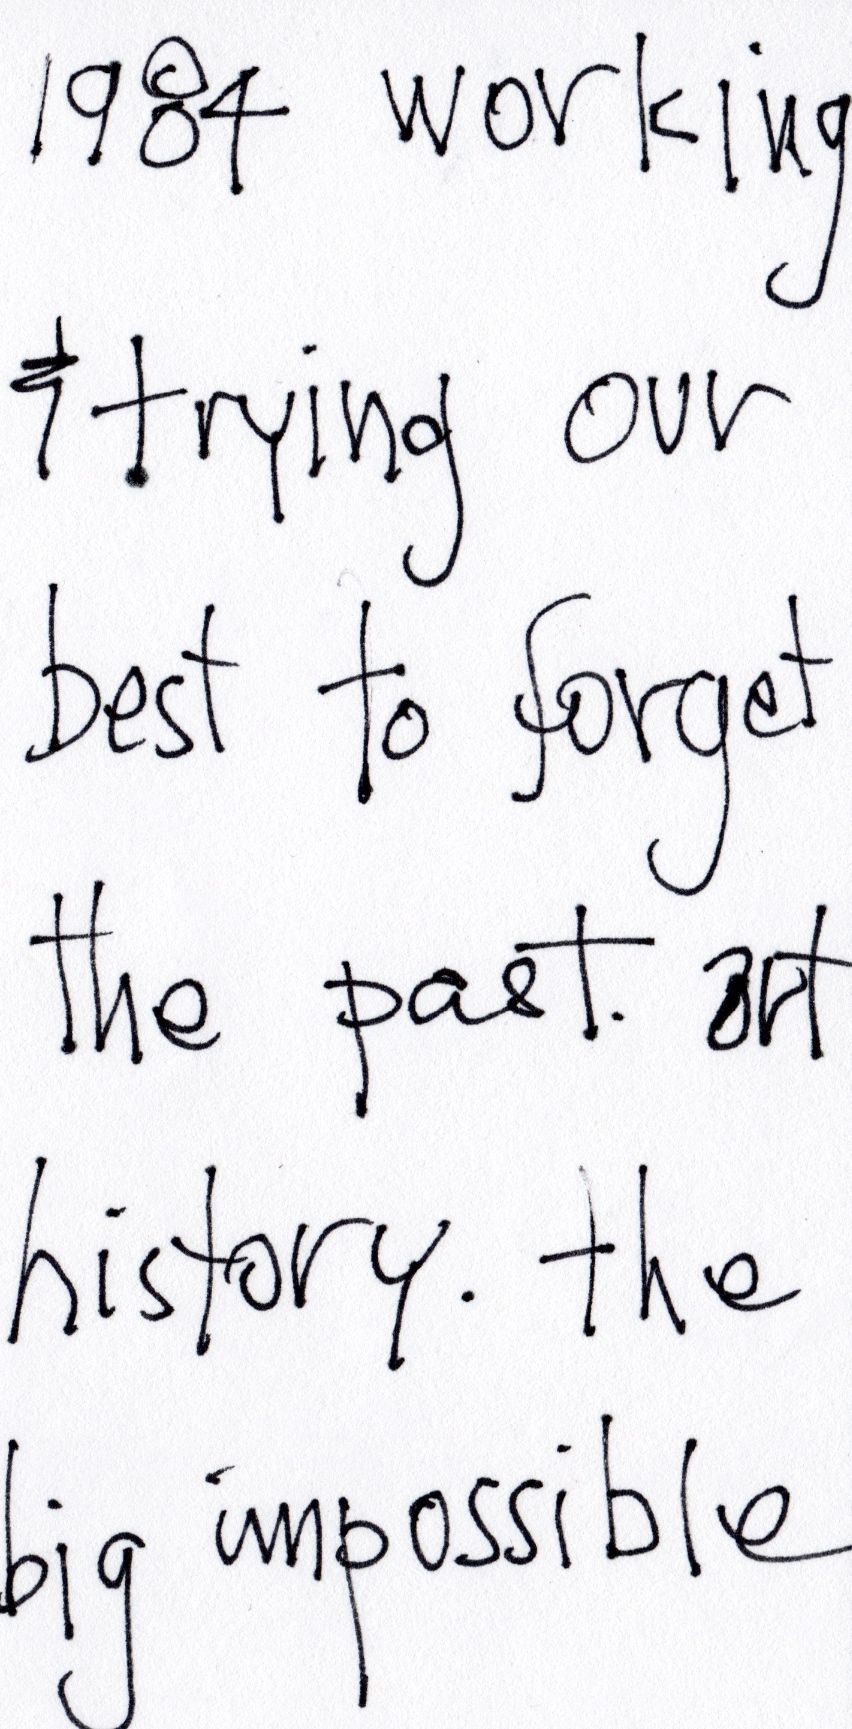 1984 working
& trying our
best to forget
the past. art
history. the
big impossible